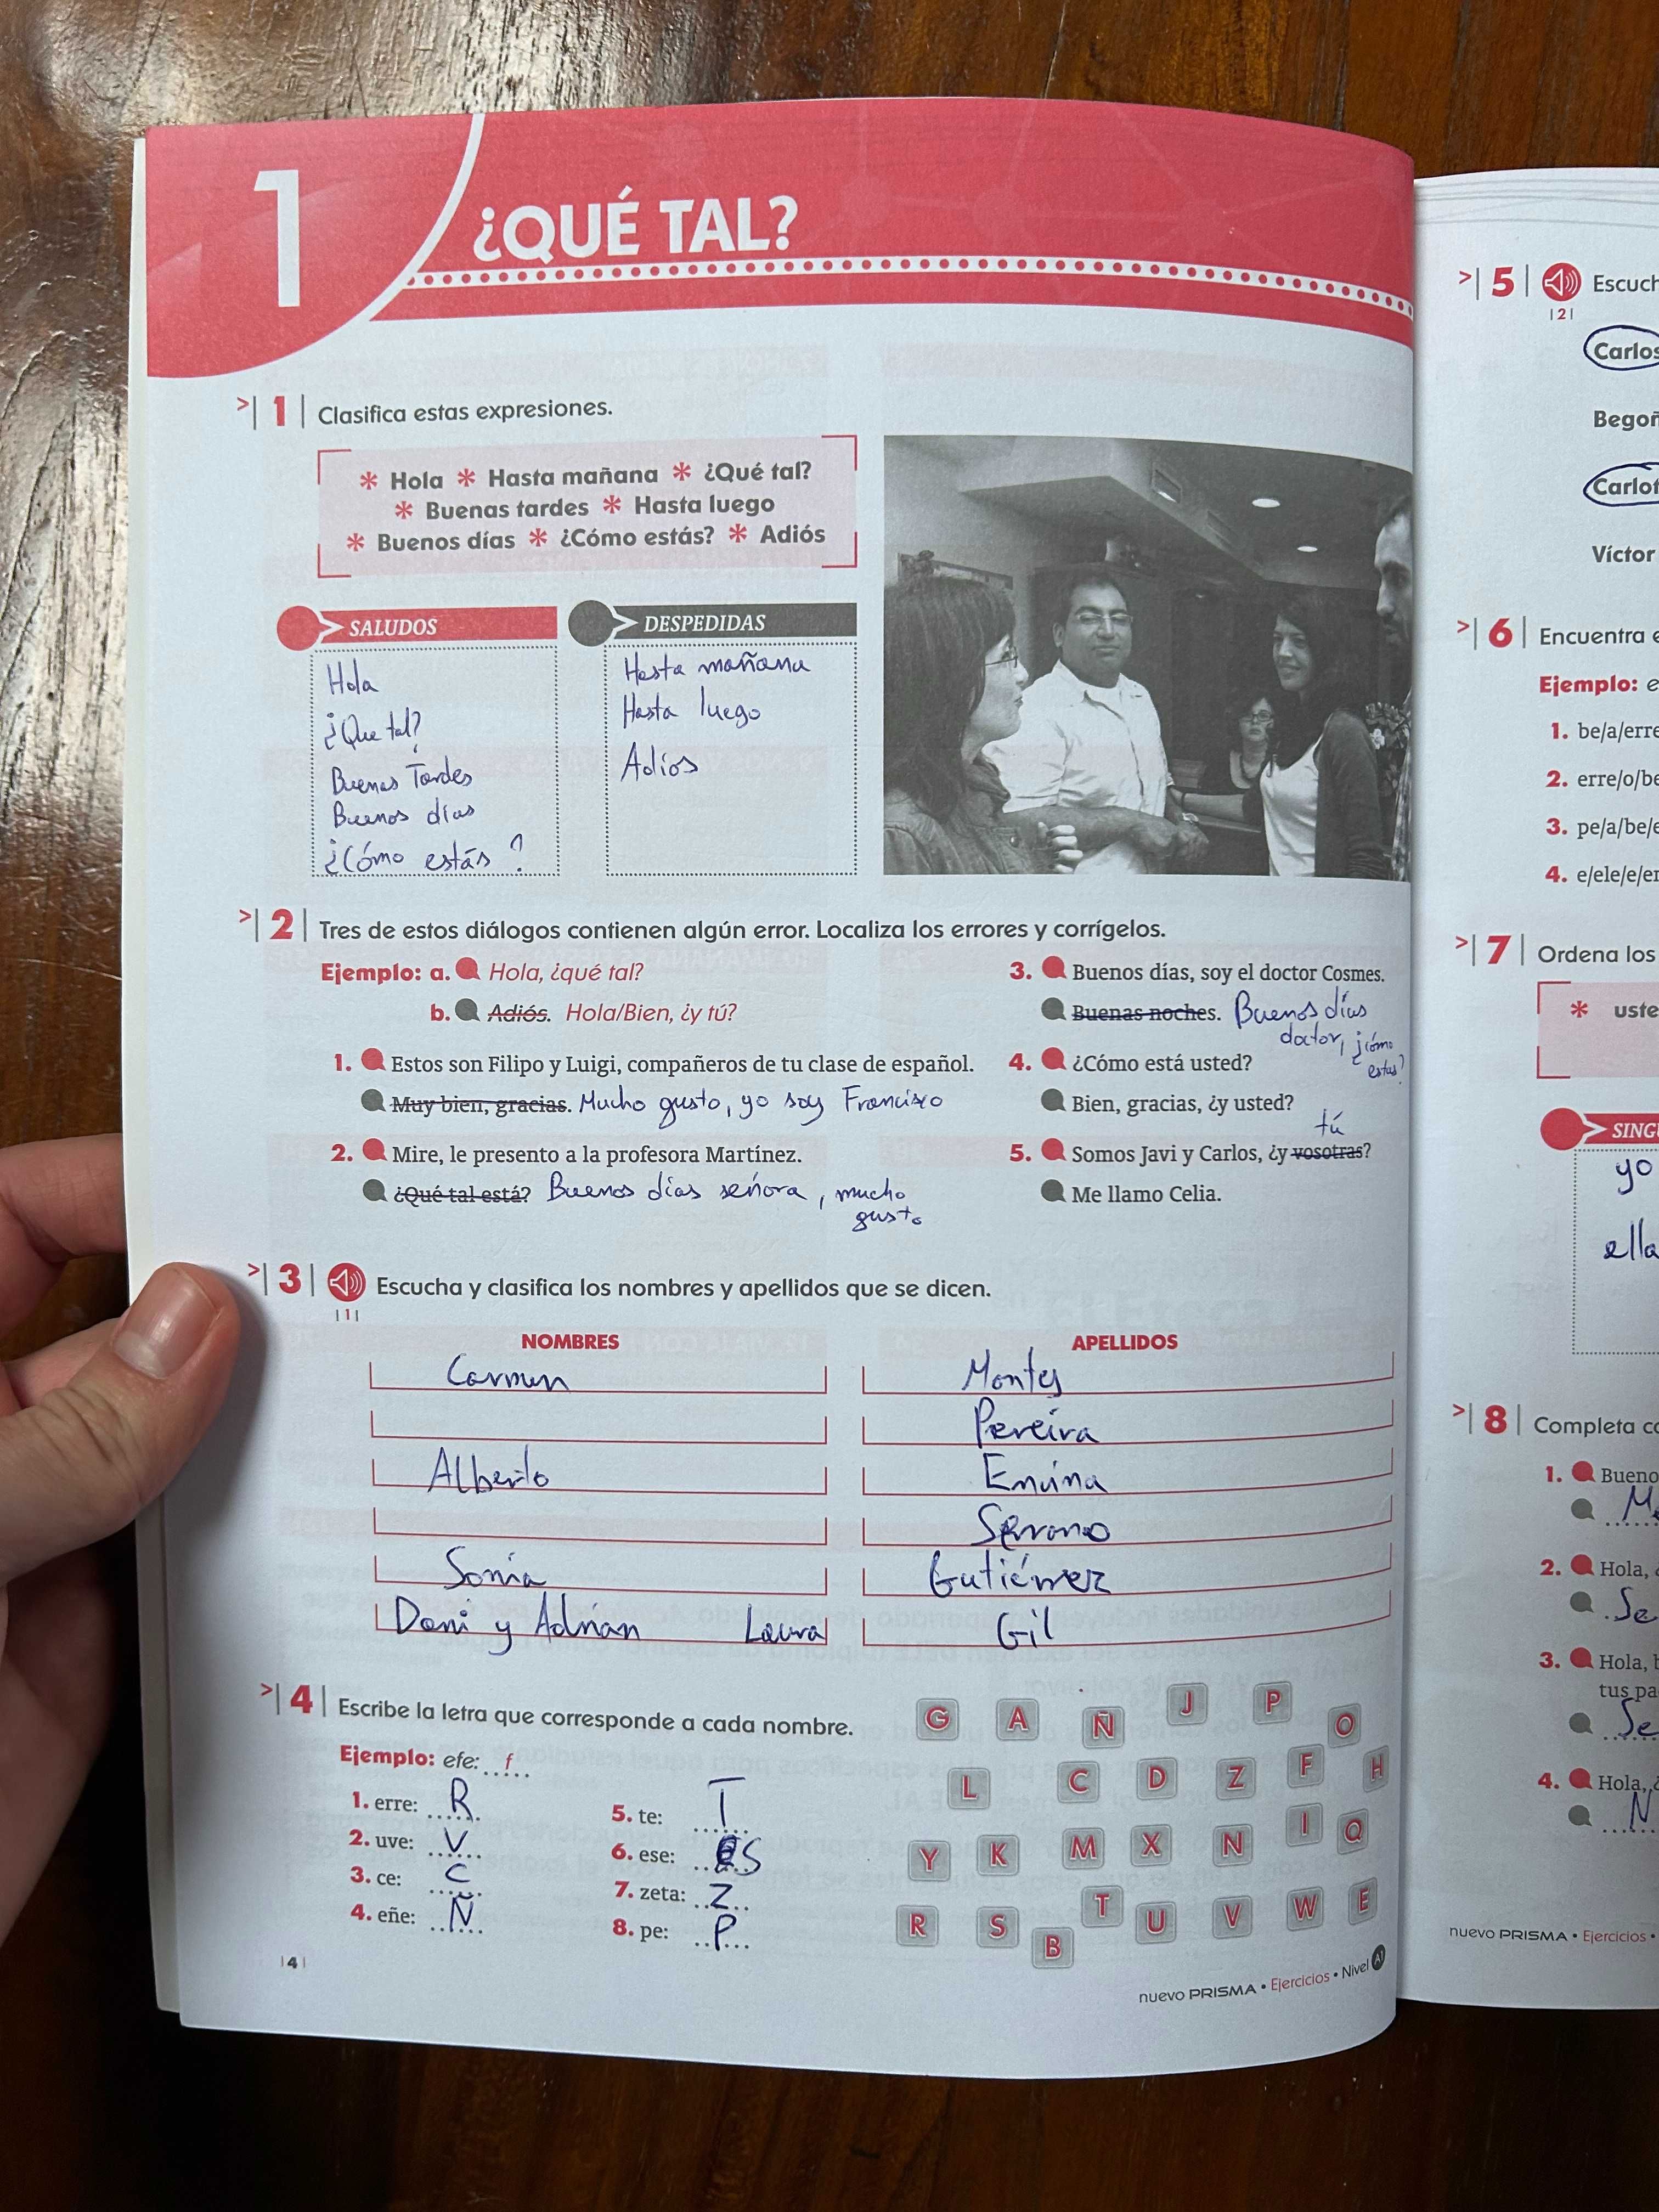 1
¿QUÉ TAL?
>| 1 | Clasifica estas expresiones.
* Hola * Hasta mañana * ¿Qué tal?
* Buenas tardes * Hasta luego
* Buenos días * ¿Cómo estás? * Adiós
SALUDOS
Hola
¿Que tal?
Buenas Tardes
Buenos días
¿Cómo estás?
DESPEDIDAS
Hasta mañana
Hasta luego
Adíos
>| 2 | Tres de estos diálogos contienen algún error. Localiza los errores y corrígelos.
Ejemplo: a. Hola, ¿qué tal?
b. Adiós. Hola/Bien, ¿y tú?
1. Estos son Filipo y Luigi, compañeros de tu clase de español.
Muy bien, gracias. Mucho gusto, yo soy Francisco
2. Mire, le presento a la profesora Martínez.
¿Qué tal está? Buenos días señora, mucho
gusto
3. Buenos días, soy el doctor Cosmes.
Buenas noches. Buenos días
doctor, ¿cómo
estas?
4. ¿Cómo está usted?
Bien, gracias, ¿y usted?
tú
5. Somos Javi y Carlos, ¿y vosotras?
Me llamo Celia.
>| 3 | Escucha y clasifica los nombres y apellidos que se dicen.
|1|
NOMBRES
Carmen
Alberto
Sonia
Dani y Adrián Laura
APELLIDOS
Montes
Pereira
Encina
Serrano
Gutiérrez
Gil
>| 4 | Escribe la letra que corresponde a cada nombre.
Ejemplo: efe: f
1. erre: R
2. uve: V
3. ce: C
4. eñe: Ñ
5. te: T
6. ese: S
7. zeta: Z
8. pe: P
G A Ñ J P O
L C D Z F H
Y K M X N I Q
R S B T U V W E
|4|
nuevo PRISMA • Ejercicios • Nivel A1
>| 5 | Escuch
|2|
Carlos
Begoñ
Carlot
Víctor
>| 6 | Encuentra e
Ejemplo: e
1. be/a/erre
2. erre/o/be
3. pe/a/be/e
4. e/ele/e/er
>| 7 | Ordena los
* uste
SING
yo
ella
>| 8 | Completa co
1. Bueno
M
2. Hola, ¿
Se
3. Hola, b
tus pa
Se
4. Hola, ¿
N
nuevo PRISMA • Ejercicios •